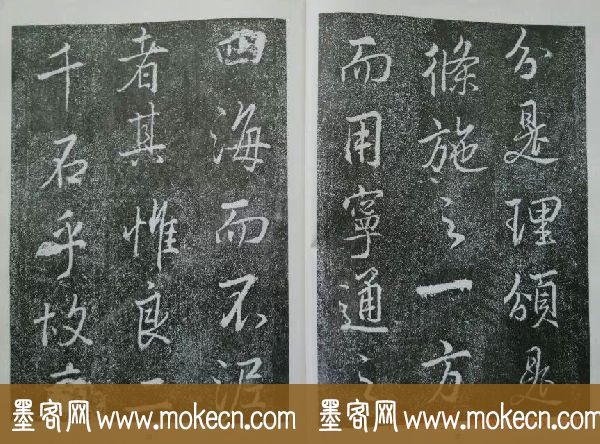 分是理頒是
條施之一方
而用寧通之
四海而不泥
者其惟良二
千石乎故
墨客网 www.mokecn.com
墨客网 www.mokecn.com